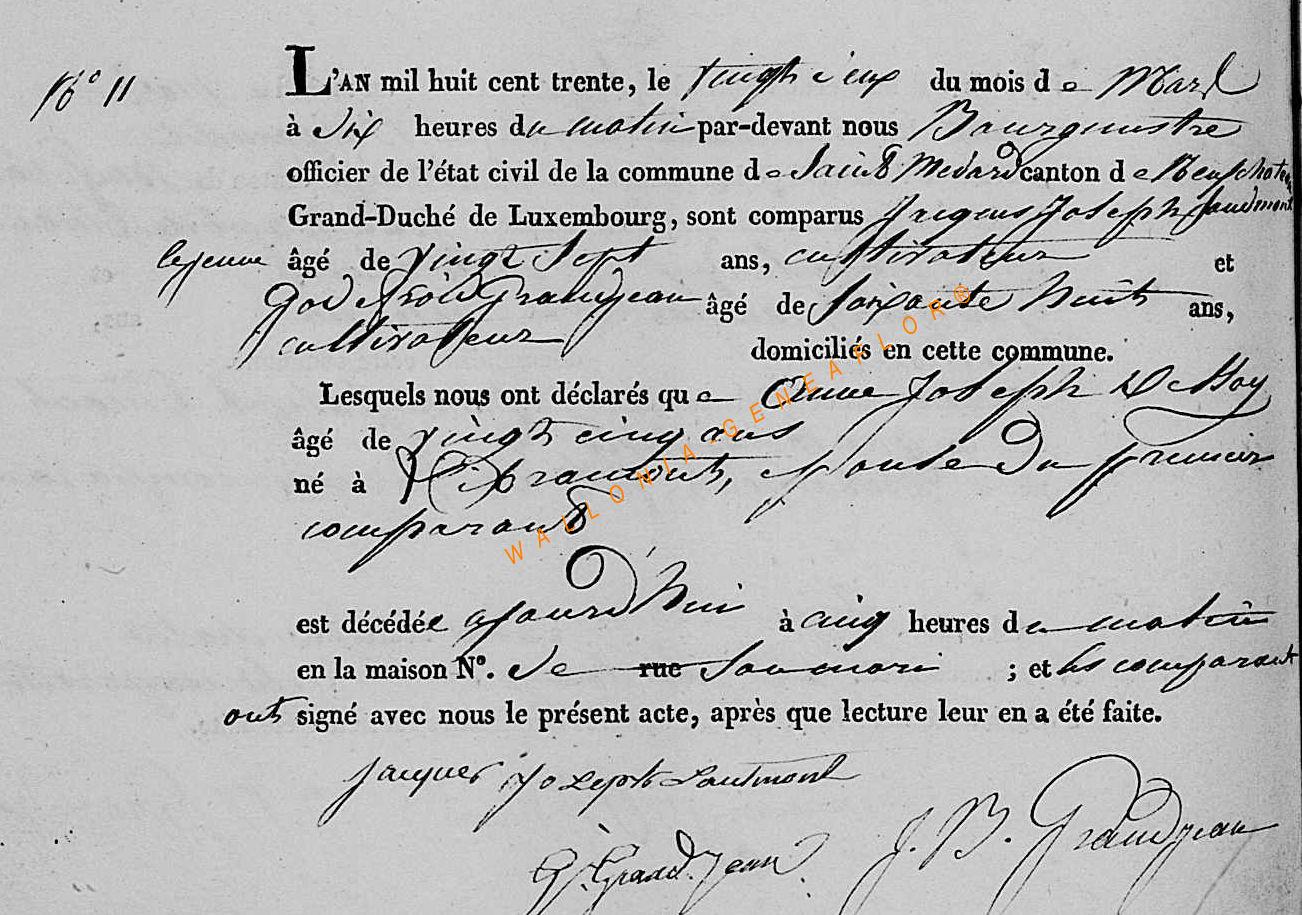 N° 11
L'AN mil huit cent trente, le vingt deux du mois de Mars
à Six heures du matin par-devant nous Bourgmestre
officier de l'état civil de la commune de Saint Medard canton de Neufchateau
Grand-Duché de Luxembourg, sont comparus Jacques Joseph
lejeune âgé de vingt Sept ans, cultivateur et
Godefroid Grandjean âgé de Soixante huit ans,
cultivateur
domiciliés en cette commune.
Lesquels nous ont déclarés que Anne Joseph
âgé de vingt cinq ans
né à Libramont, épouse du premier
comparant
est décédée ajourd'hui à cinq heures du matin
en la maison N°. de rue Son mari ; et les comparant
ont signé avec nous le présent acte, après que lecture leur en a été faite.
Jacques Joseph
G. Grandjean
J. B. Grandjean
WALLONIA-GENEAFLOR®